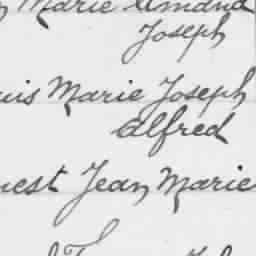 Marie Amand
Joseph
uis Marie Joseph
Alfred
nest Jean Marie